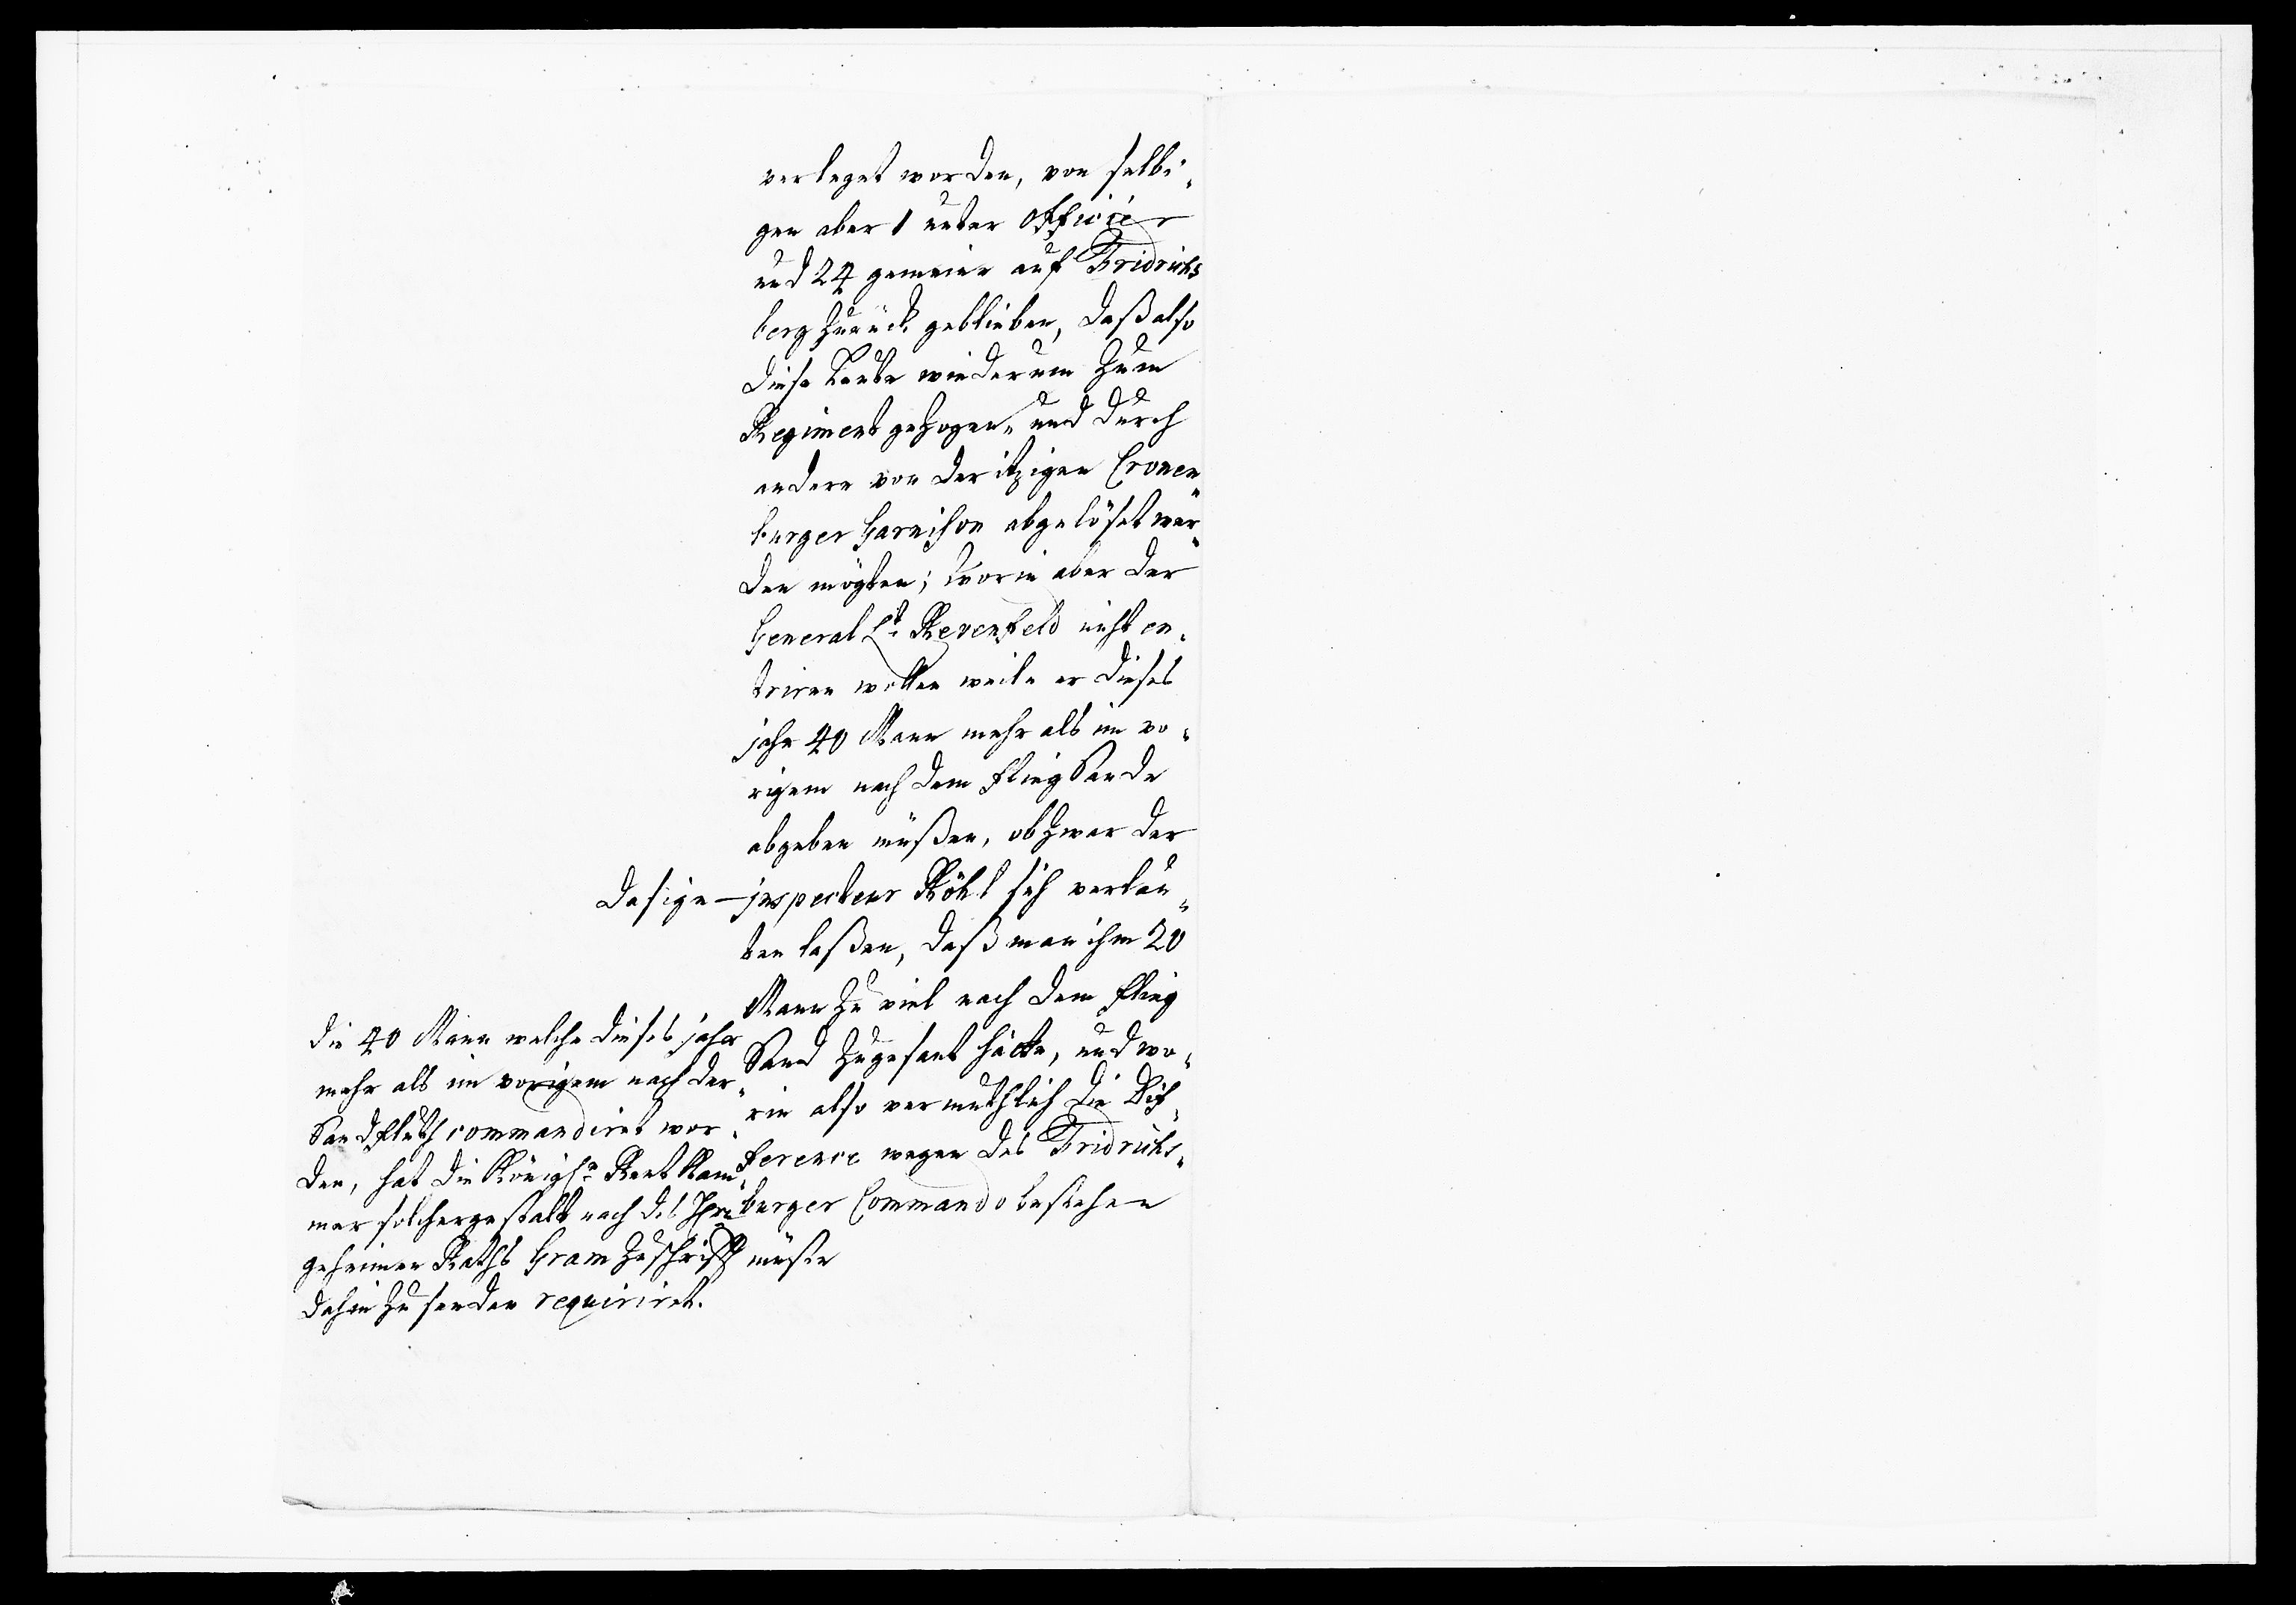 verleget worden, von selbi-
gen aber 1 unter Officier
und 24 gemeine auf Fridrichs
berg Zurück geblieben, daß also
diese Leute wiederum Zum
Regiment gezogen, und durch
andere von der itzigen Cronen-
burger Garnison abgelöset wer-
den mögten; worin aber der
General Lt. Revenfeld nicht en-
triren wollen weile er dieses
jahr 40 Mann mehr als im vo-
rigem nach dem Flieg Sande
abgeben müßen, ob Zwar der
dasige inspecteur Röhl sich verlau-
ten laßen, daß man ihm 20
Mann Zu viel nach dem Flieg
Sand Zugesant hätte, und wo-
rin also vermuthlich die Dif-
ference wegen des Fridrichs-
burger Commando bestehen
müste
die 40 Mann welche dieses jahr
mehr als im vorigem nach der
Sandfluth commandiret wor-
den, hat die Königl. Rent Kam-
mer solchergestalt nach des Hrn
geheimen Raths Gram Zuschrifft
dahin Zu senden requiriret.